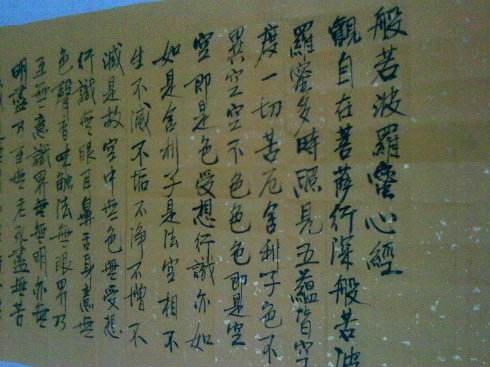 般若波羅蜜心經
觀自在菩薩行深般若波
羅蜜多時照見五蘊皆空
度一切苦厄舍利子色不
異空空不色色色即是空
空即是色受想行識亦如
如是舍利子是法空相不
生不滅不垢不淨不增不
滅是故空中無色無受想
行識無眼耳鼻舌身意無
色聲香味觸法無眼界乃
至無意識界無無明亦無
明盡乃至無老死盡無苦